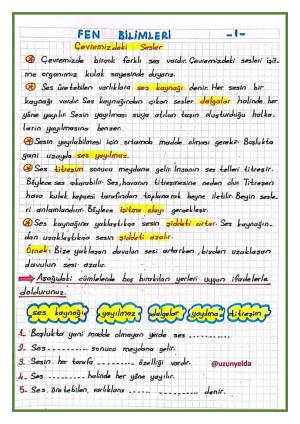 FEN BİLİMLERİ -1-
Çevremizdeki Sesler
* Çevremizde birçok farklı ses vardır. Çevremizdeki sesleri işit-
me organımız kulak sayesinde duyarız.
* Ses üretebilen varlıklara ses kaynağı denir. Her sesin bir
kaynağı vardır. Ses kaynağından çıkan sesler dalgalar halinde her
yöne yayılır. Sesin yayılması suya atılan taşın oluşturduğu halka-
ların yayılmasına benzer.
* Sesin yayılabilmesi için ortamda madde olması gerekir. Boşlukta
yani uzayda ses yayılmaz.
* Ses titreşim sonucu meydana gelir. İnsanın ses telleri titreşir.
Böylece ses çıkarabilir. Ses, havanın titreşmesine neden olur. Titreşen
hava kulak kepçesi tarafından toplanarak beyne iletilir. Beyin sesle-
ri anlamlandırır. Böylece işitme olayı gerçekleşir.
* Ses kaynağına yaklaştıkça sesin şiddeti artar. Ses kaynağın-
dan uzaklaştıkça sesin şiddeti azalır.
Örnek: Bize yaklaşan davulun sesi artarken, bizden uzaklaşan
davulun sesi azalır.
Aşağıdaki cümlelerde boş bırakılan yerleri uygun ifadelerle
doldurunuz.
ses kaynağı yayılmaz dalgalar yayılma titreşim
1. Boşlukta yani madde olmayan yerde ses ..........
2. Ses .......... sonucu meydana gelir.
3. Sesin her tarafa .......... özelliği vardır.
@uzunyelda
4. Ses .......... halinde her yöne yayılır.
5. Ses üretebilen varlıklara .......... denir.